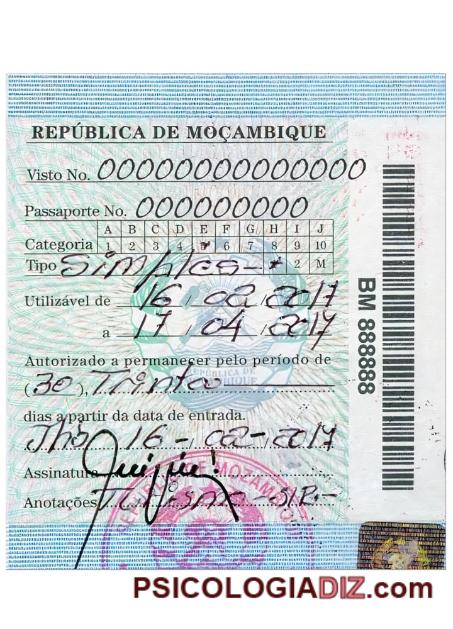 REPÚBLICA DE MOÇAMBIQUE
Visto No. 00000000000000
Passaporte No. 000000000
A B C D E F G H I J
Categoria 1 2 3 4 5 6 7 8 9 10
Tipo Simples 2 M
Utilizável de 16/02/2017
a 17/04/2017
Autorizado a permanecer pelo período de
(30), Trinta
dias a partir da data de entrada.
16-02-2017
Assinatura
Anotações
BM 888888
PSICOLOGIADIZ.com